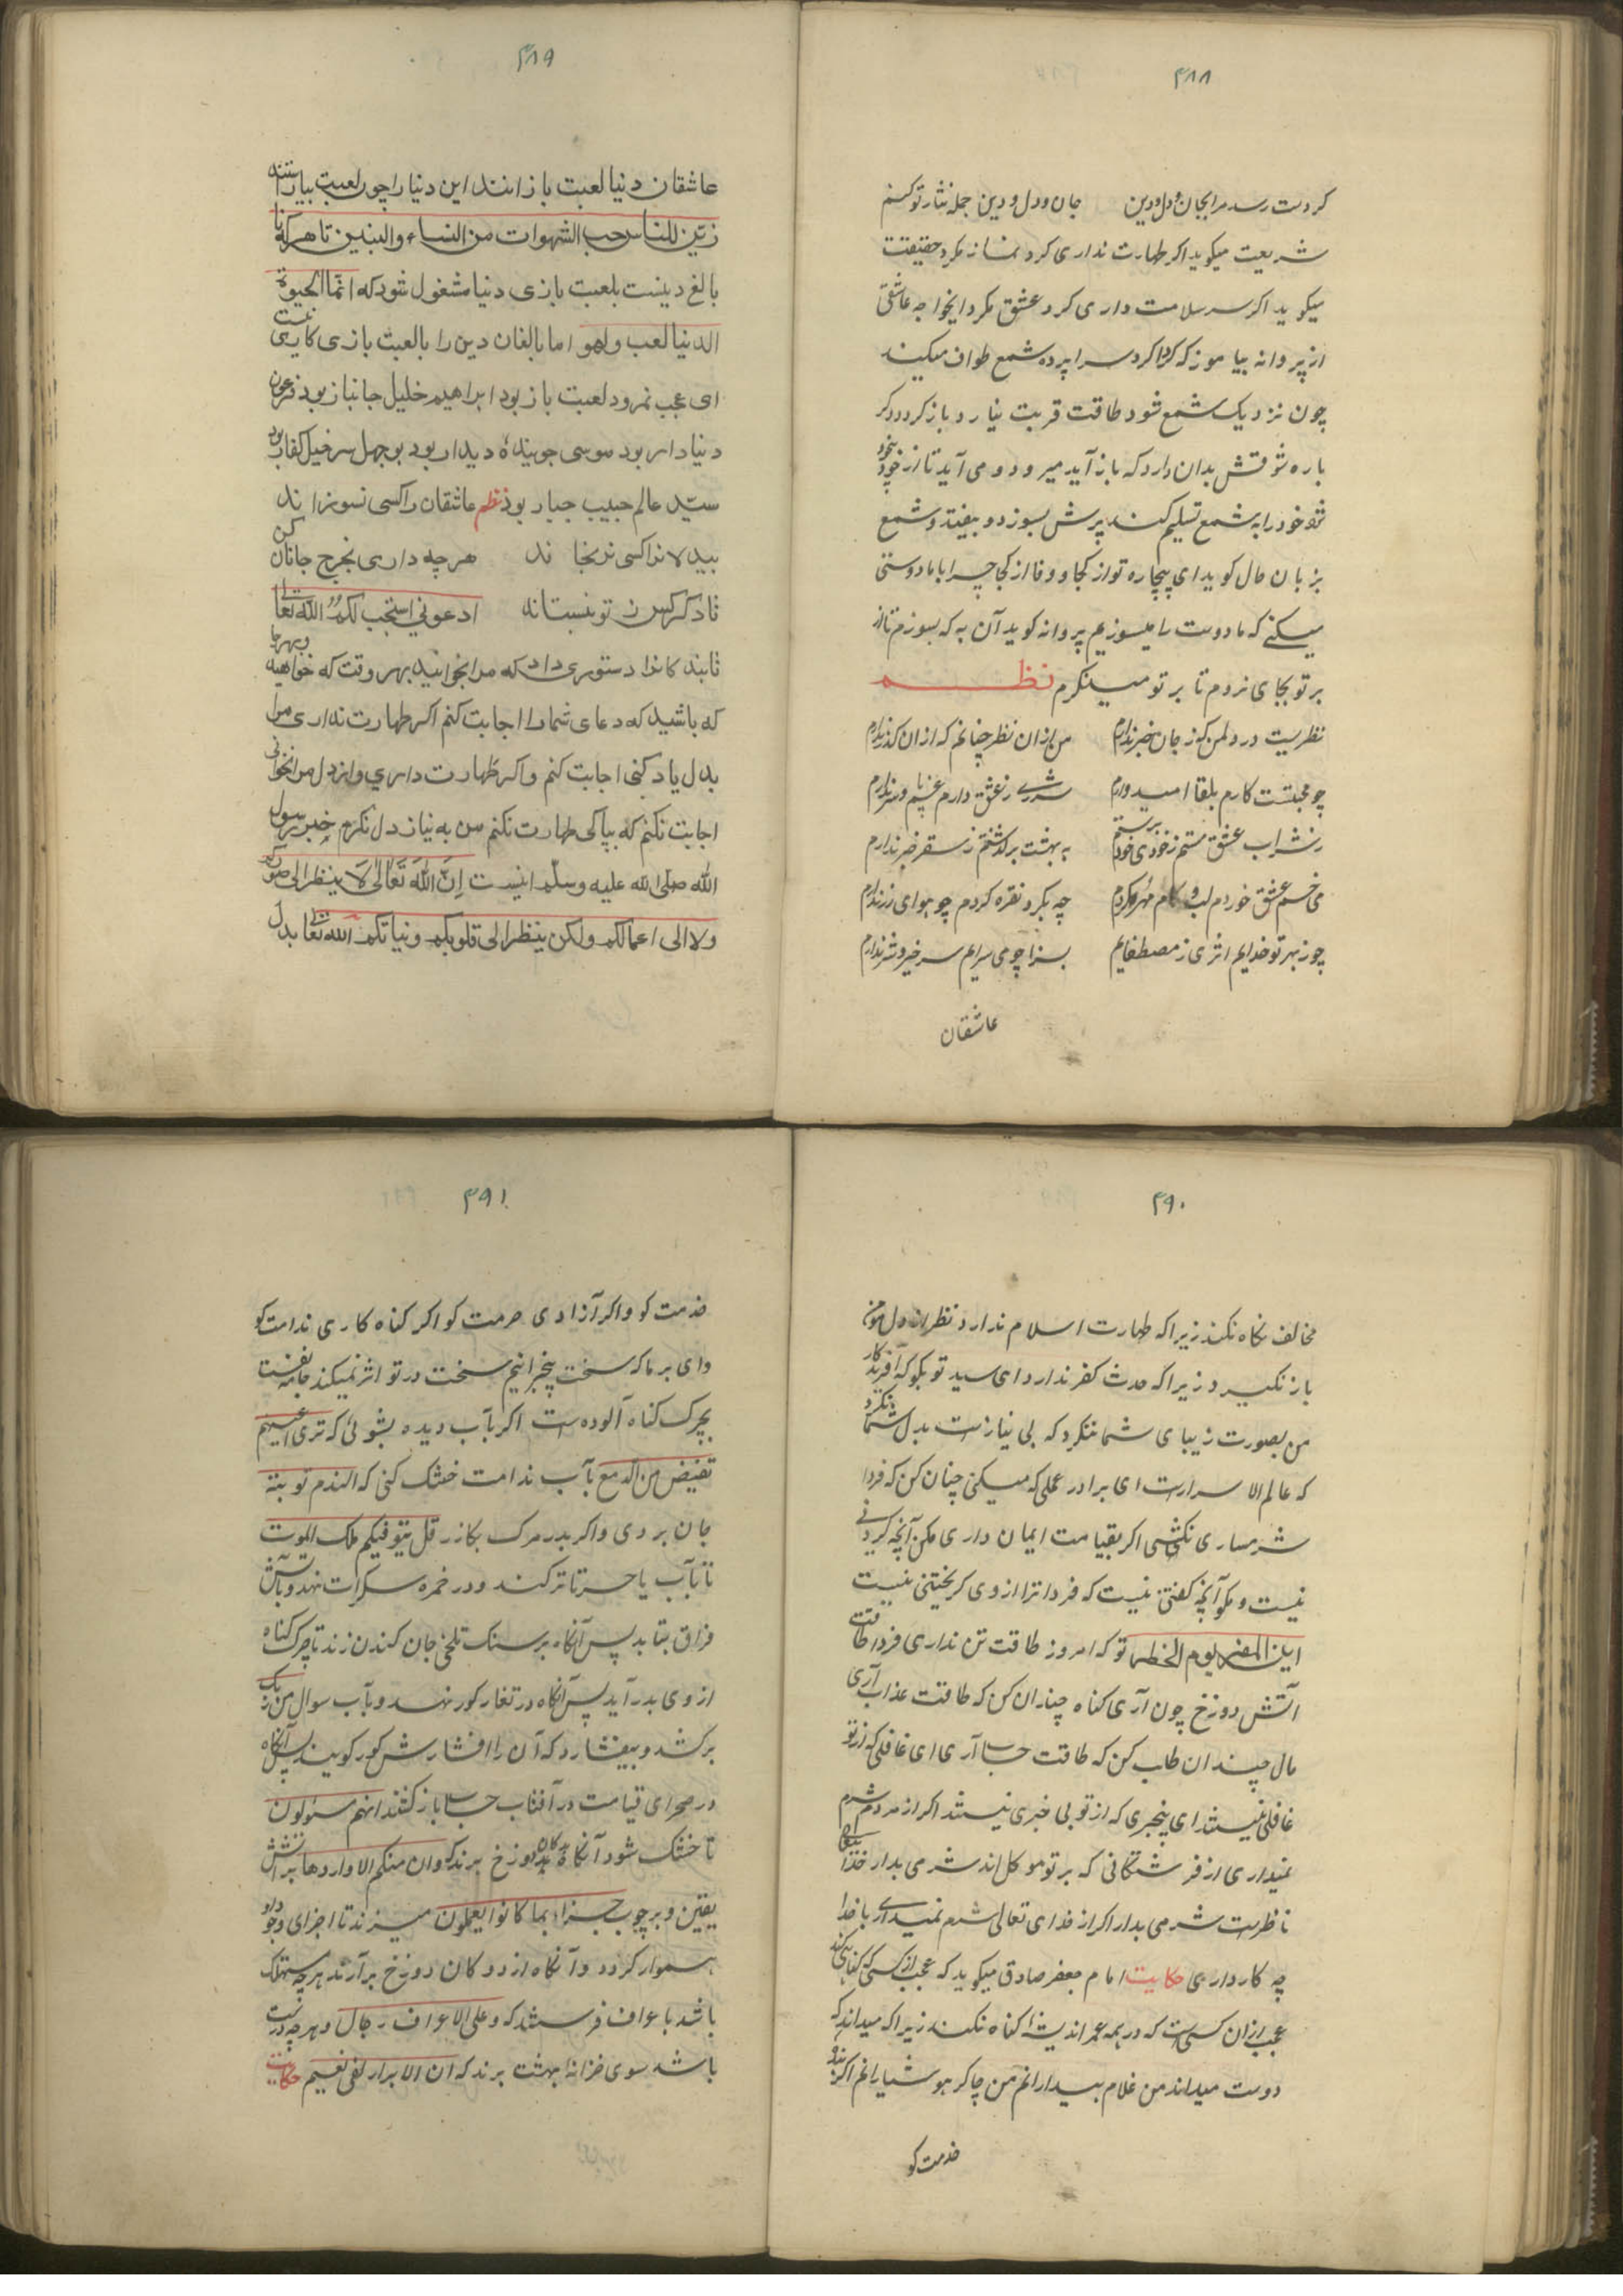 ۴۸۸
کر دست رسد مرا بجان و دل و دین جان و دل و دین جمله نثار تو کنم
شریعت میکوید اکر طهارت نداری کرد نماز مکرد حقیقت
میکوید اکر سر سلامت داری کرد عشق مکرد ایخواجه عاشقی
از پروانه بیاموز که کرداکرد سراپرده شمع طواف میکند
چون نزدیک شمع شود طاقت قربت نیارد باز کردد دکر
باره شوقش بدان دارد که باز آید میرود و می آید تا از خود بیخود
شود خود را به شمع تسلیم کند پرش بسوزد و بیفتد و شمع
بزبان حال کوید ای بیچاره تو از کجا و وفا از کجا چرا با ما دوستی
میکنی که ما دوست را میسوزیم پروانه کوید آن به که بسوزم تا از
بر تو بجای نروم تا بر تو مینکرم نظم
نظریست در دلمن که ز جان خبر ندارم من از ان نظر چنانم که از ان کذر ندارم
چو محبتست کارم بلقا امیدوارم شرری ز عشق دارم غم پا و سر ندارم
ز شراب عشق مستم ز خودی خود برستم به بهشت برکذشتم ز سقر خبر ندارم
می خم عشق خوردم لب و کام مهر کردم چه بکرد نقره کردم چو هوای زر ندارم
چو ز بهر تو خدایم اثری ز مصطفایم بسزا چو می سرایم سر خیر و شر ندارم
عاشقان
۴۸۹
عاشقان دنیا لعبت بازانند این دنیا را چون لعبت بیاراستند
زین للناس حب الشهوات من النساء والبنین تا هر که نا
بالغ دینست بلعبت بازی دنیا مشغول شود که انما الحیوة
الدنیا لعب ولهو اما بالغان دین را بالعبت بازی کاری نیست
ای عجب نمرود لعبت باز بود ابراهیم خلیل جانباز بود فرعون
دنیادار بود موسی جوینده دیدار بود بوجهل سرخیل کفار بود
سید عالم حبیب جبار بود نظم عاشقان را کسی نسوزاند
بیدلانرا کسی نرنجاند هرچه داری بخرج جانان کن
تا دکر کس ز تو نبستاند ادعونی استجب لکم الله تعالی
تا بندکانرا دستوری داد که مرا بخوانید بهر وقت که خواهید و بهر جا
که باشید که دعای شما را اجابت کنم اکر طهارت نداری مرا
بدل یاد کنی اجابت کنم و اکر طهارت داری و از دل مرا نخوانی
اجابت نکنم که بپاکی طهارت نکنم من به نیاز دل نکرم خبر رسول
الله صلی الله علیه وسلم اینست إن الله تعالی لا ینظر الی صورکم
ولا الی اعمالکم ولکن ینظر الی قلوبکم ونیاتکم الله تعالی بدل
۴۹۰
مخالف نکاه نکند زیرا که طهارت اسلام ندارد نظر از دل مؤمن
باز نکیرد زیرا که حدث کفر ندارد ای سید تو بکو که آفریدکار
من بصورت زیبای شما ننکرد که بی نیازست بدل شما نکرد
که عالم الاسرارست ای برادر عملی که میکنی چنان کن که فردا
شرمساری نکشی اکر بقیامت ایمان داری مکن آنچه کردنی
نیست و مکو آنچه کفتنی نیست که فردا ترا از وی کریختنی نیست
این المفر یوم الخطر تو که امروز طاقت تن نداری فردا طاقت
آتش دوزخ چون آری کناه چندان کن که طاقت عذاب آری
مال چندان طلب کن که طاقت حساب آری ای غافلی که از تو
غافلی نیستند ای بیخبری که از تو بی خبری نیستند اکر از مردم شرم
نمیداری از فرشتکانی که بر تو موکل اند شرمی بدار خدا تعالی
ناظرست شرمی بدار اکر از خدای تعالی شرم نمیداری با خدا
چه کار داری حکایت امام جعفر صادق میکوید که عجب از کسی که کناهی کند
عجب از ان کسیست که در همه عمر اندیشه کناه نکند زیرا که میداند که
دوست میداند من غلام بیدارانم من چاکر هوشیارانم اکر بندهٔ
خدمت کو
۴۹۱
خدمت کو و اکر آزادی حرمت کو اکر کناه کاری ندامت کو
وای بر ما که سخت بیخبرانیم سخت در تو اثر نمیکند جامه نفست
بچرک کناه آلوده است اکر بآب دیده بشوئی که تری اعینهم
تفیض من الدمع بآب ندامت خشک کنی که الندم توبته
جان بردی و اکر بدر مرک بکازر قل یتوفیکم ملک الموت
تا بآب یا حسرتا ترکند و در خمره سکرات نهد و بآتش
فراق بتابد پس آنکاه بر سنک تلخی جان کندن زند تا چرک کناه
از وی بدر آید پس آنکاه در تغار کور نهد و بآب سوال من ربک
برکشد و بیفشارد که آن را افشارش کور کویند پس آنکاه
در صحرای قیامت در آفتاب حساب باز کنند انهم مسئولون
تا خشک شود آنکاه بدکان دوزخ برند که وان منکم الا واردها بر آتش
یقین و بر چوب جزاء بما کانوا یعملون میزند تا اجزای وجود او
هموار کردد و آنکاه از دوکان دوزخ برآرند هر چه مستهلک
باشد باعراف فرستند که وعلی الاعراف رجال و هر چه درست
باشد سوی خزانه بهشت برند که ان الابرار لفی نعیم حکایت